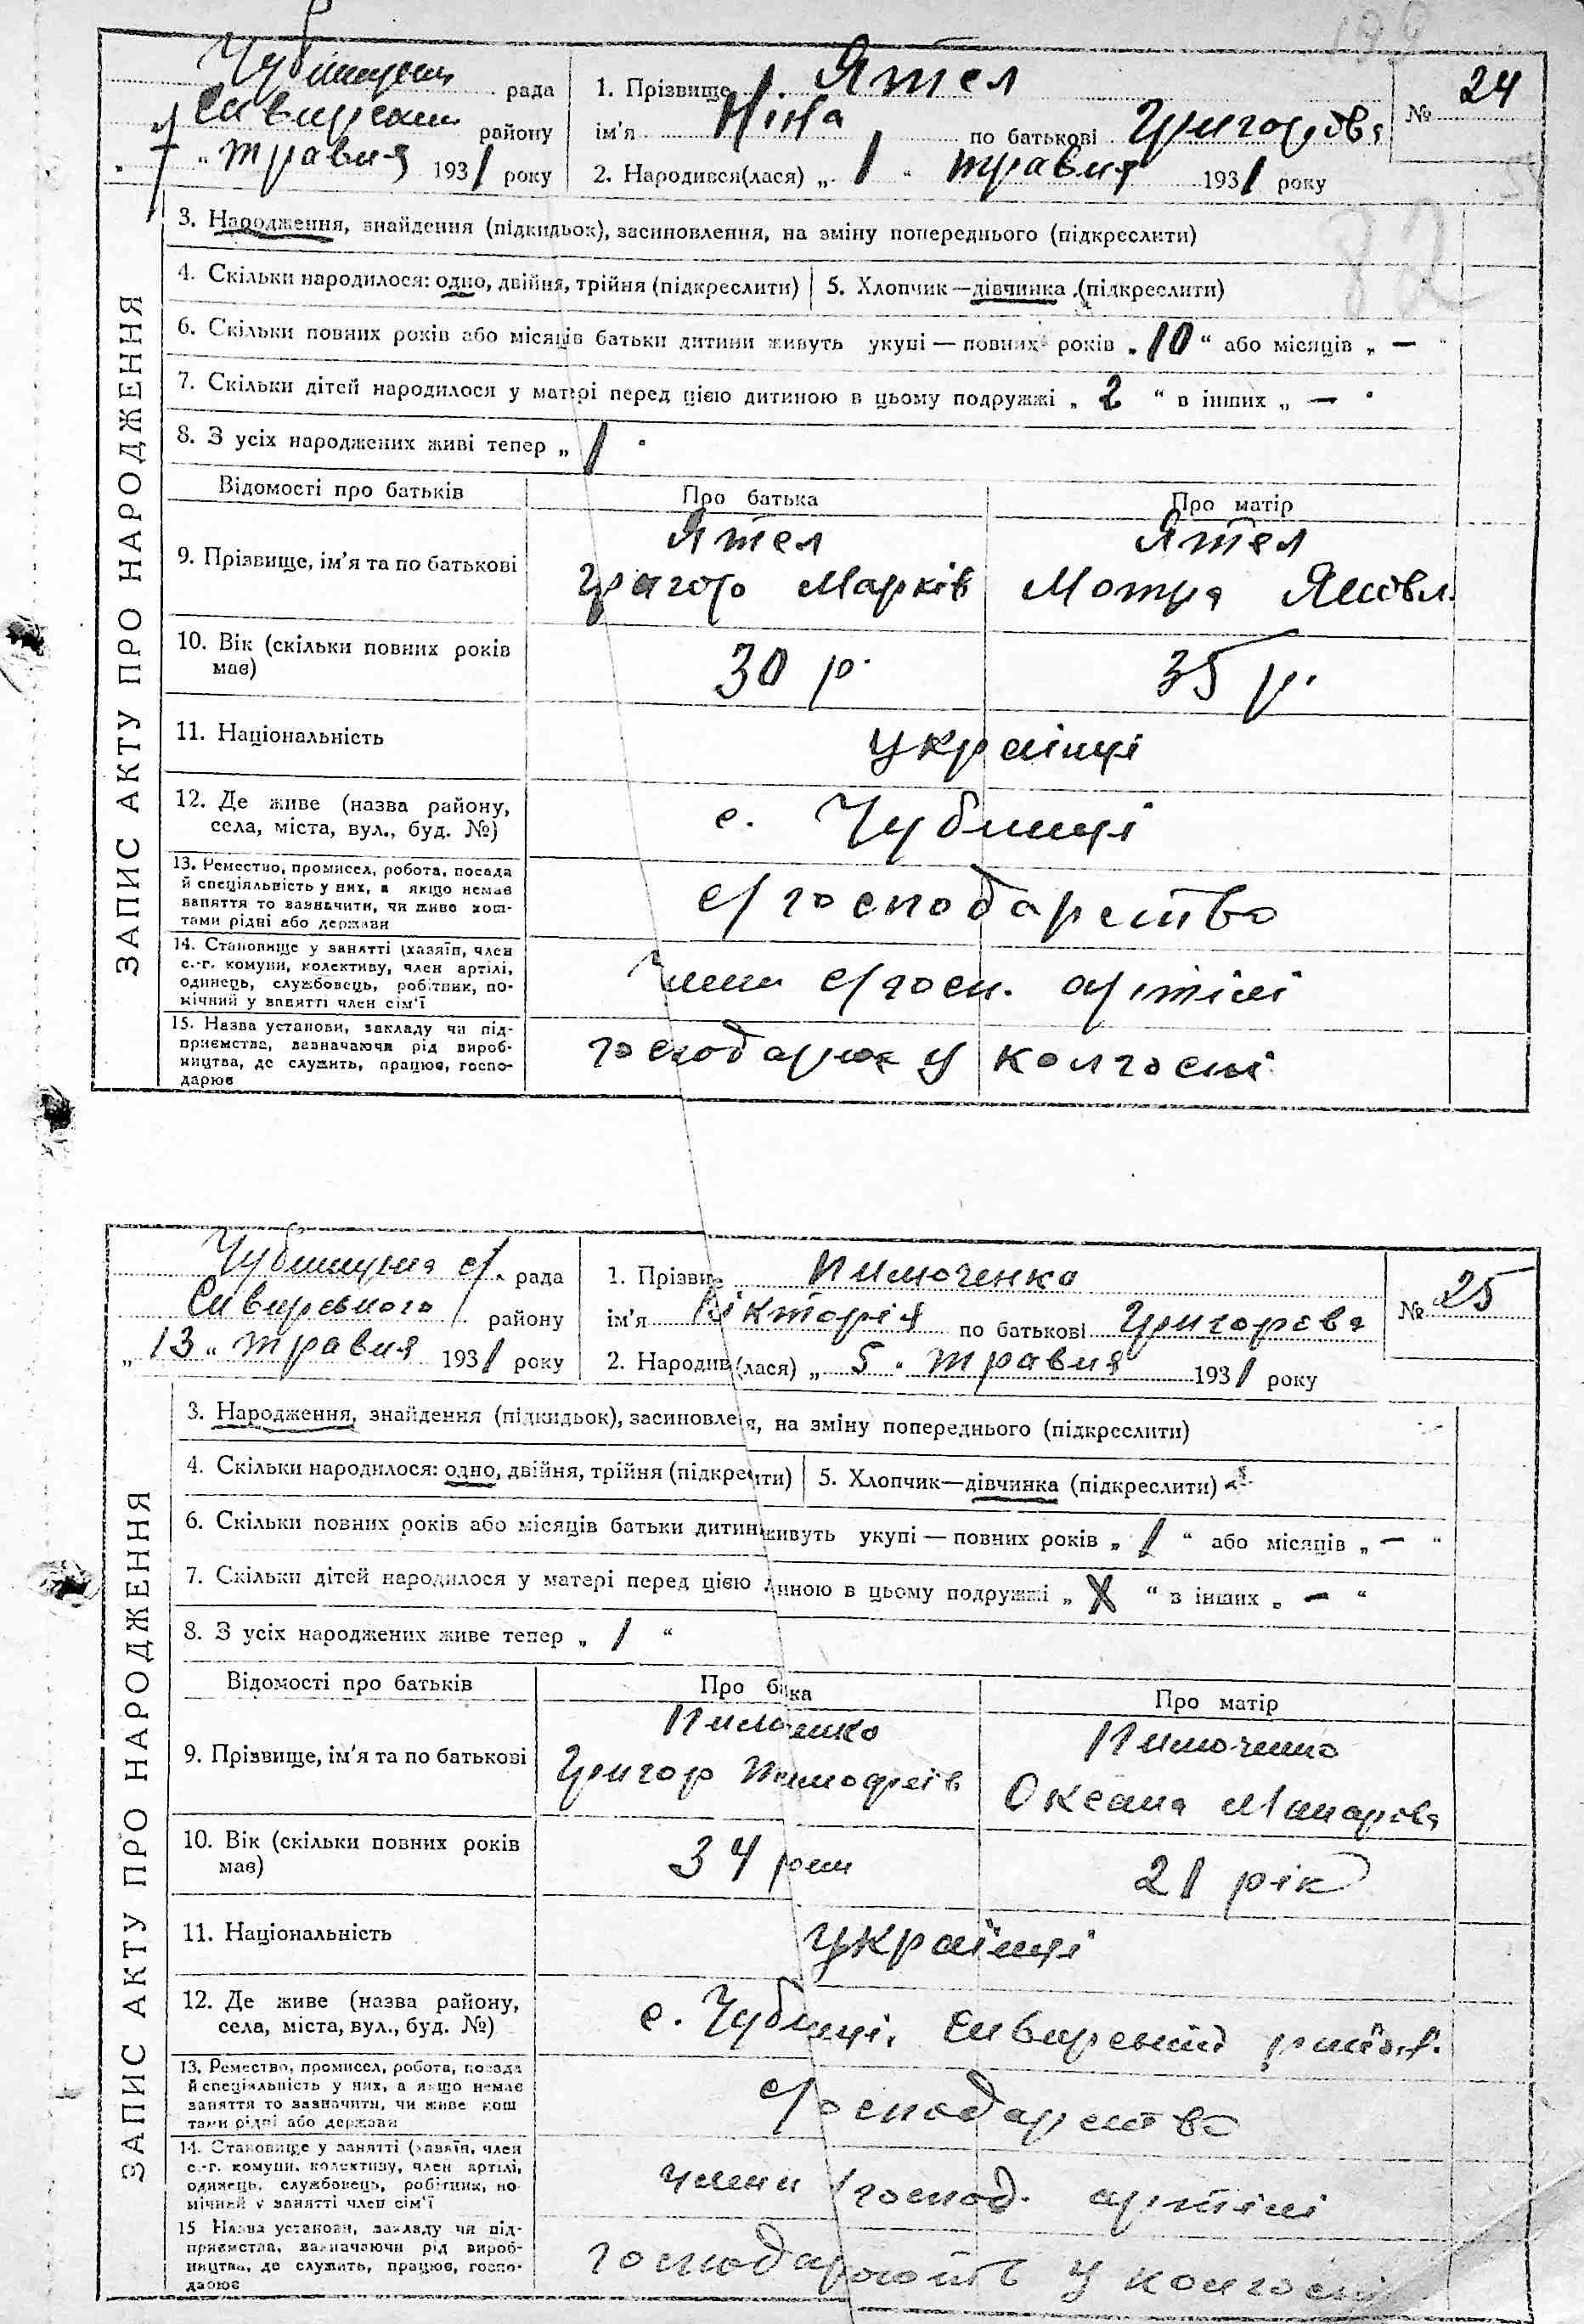 рада
1. Прізвище Ятел
№ 24
району
ім'я Ніна по батькові Григоров.
травня 1931 року
2. Народився(лася) „ 1 " травня 1931 року
82
ЗАПИС АКТУ ПРО НАРОДЖЕННЯ
3. Народження, знайдення (підкидьок), засиновлення, на зміну попереднього (підкреслити)
4. Скільки народилося: одно, двійня, трійня (підкреслити)
5. Хлопчик—дівчинка (підкреслити)
6. Скільки повних років або місяців батьки дитини живуть укупі — повних років „ 10 " або місяців „ — "
7. Скільки дітей народилося у матері перед цією дитиною в цьому подружжі „ 2 " в інших „ — "
8. З усіх народжених живі тепер „ 1 "
Відомості про батьків
Про батька
Про матір
9. Прізвище, ім'я та по батькові
Ятел
Григор Марків
Ятел
Мотря Яковл.
10. Вік (скільки повних років має)
30 р.
35 р.
11. Національність
українці
12. Де живе (назва району, села, міста, вул., буд. №)
с. Чубинці
13. Ремество, промисел, робота, посада
й спеціяльність у них, а якщо немає
заняття то зазначити, чи живе кош-
тами рідні або держави
с/господарство
14. Становище у занятті (хазяїн, член
с.-г. комуни, колективу, член артілі,
одинець, службовець, робітник, по-
мічний у занятті член сім'ї
члени с/госп. артілі
15. Назва установи, закладу чи під-
приємства, зазначаючи рід вироб-
ництва, де служить, працює, госпо-
дарює
у колгоспі
с/. рада
1. Прізви Пилюченко
№ 25
району
ім'я Вікторія по батькові Григорова
„ 13 " травня 1931 року
2. Народив(лася) „ 5 " травня 1931 року
ЗАПИС АКТУ ПРО НАРОДЖЕННЯ
3. Народження, знайдення (підкидьок), засиновле я, на зміну попереднього (підкреслити)
4. Скільки народилося: одно, двійня, трійня (підкре ити)
5. Хлопчик—дівчинка (підкреслити)
6. Скільки повних років або місяців батьки дитин живуть укупі — повних років „ 1 " або місяців „ — "
7. Скільки дітей народилося у матері перед цією иною в цьому подружжі „ X " в інших „ — "
8. З усіх народжених живе тепер „ 1 "
Відомості про батьків
Про б ка
Про матір
9. Прізвище, ім'я та по батькові
Григор Тимофіїв
Пилюченко
Оксана Макарова
10. Вік (скільки повних років має)
34 роки
21 рік
11. Національність
українці
12. Де живе (назва району, села, міста, вул., буд. №)
с. Чубинці,
13. Ремество, промисел, робота, посада
й спеціяльність у них, а якщо немає
заняття то зазначити, чи живе кош
тами рідні або держави
с/господарство
14. Становище у занятті (хазяїн, член
с.-г. комуни, колективу, член артілі,
одинець, службовець, робітник, по
мічний у занятті член сім'ї
члени с/господ. артілі
15 Назва установи, закладу чи під-
приємства, зазначаючи рід вироб-
ництва, де служить, працює, госпо-
дарює
господарюють у колгоспі